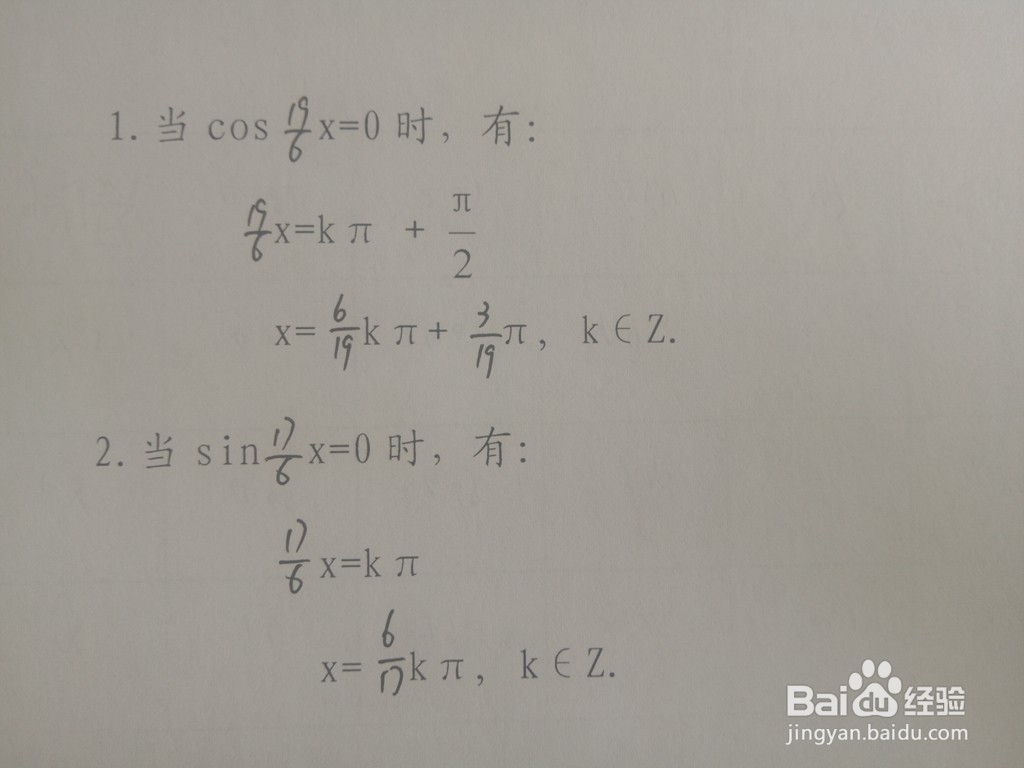 1. 当 cos 19/6 x=0 时，有：
19/6 x=kπ + π/2
x= 6/19 kπ+ 3/19 π，k∈Z.
2. 当 sin 17/6 x=0 时，有：
17/6 x=kπ
x= 6/17 kπ，k∈Z.
Bai du 经验
jingyan.baidu.com